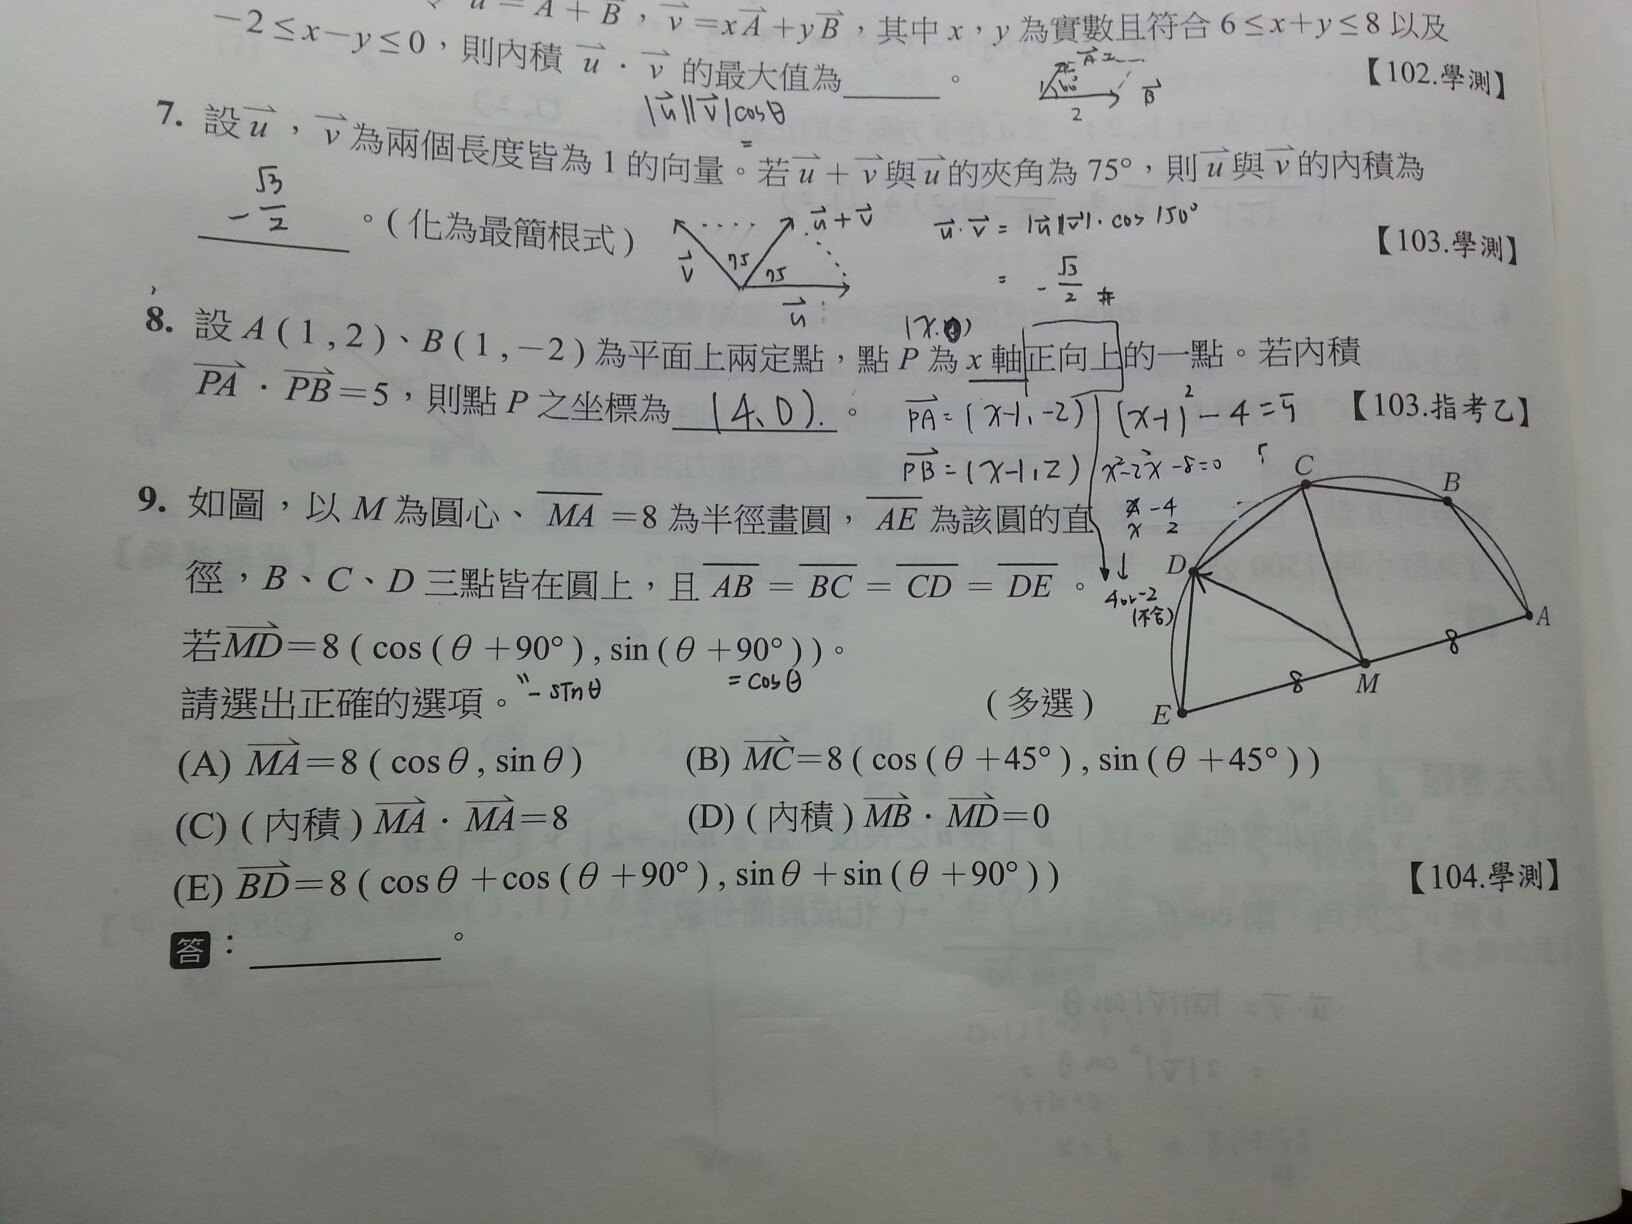 u = A + B，v = xA + yB，其中 x，y 為實數且符合 6≤x+y≤8 以及
−2≤x−y≤0，則內積 u · v 的最大值為＿＿＿。
【102.學測】
2
B
|u||v|cosθ
=
7. 設 u，v 為兩個長度皆為 1 的向量。若 u + v 與 u 的夾角為 75°，則 u 與 v 的內積為
−√3/2 。(化為最簡根式)
【103.學測】
v 75 75 u+v u
u·v = |u||v|·cos150°
= −√3/2 #
(x,0)
8. 設 A(1,2)、B(1,−2) 為平面上兩定點，點 P 為 x 軸正向上的一點。若內積
PA · PB=5，則點 P 之坐標為 (4,0)。
【103.指考乙】
PA=(x-1,-2)
(x-1)²-4=5
PB=(x-1,2)
x²-2x-8=0
x -4
x 2
4or-2
(不合)
9. 如圖，以 M 為圓心、MA=8 為半徑畫圓，AE 為該圓的直
徑，B、C、D 三點皆在圓上，且 AB = BC = CD = DE。
若 MD=8(cos(θ+90°),sin(θ+90°))。
-sinθ
=cosθ
請選出正確的選項。
(多選)
C
B
D
A
8
8
M
E
(A) MA=8(cosθ,sinθ)
(B) MC=8(cos(θ+45°),sin(θ+45°))
(C) (內積) MA · MA=8
(D) (內積) MB · MD=0
(E) BD=8(cosθ+cos(θ+90°),sinθ+sin(θ+90°))
【104.學測】
答：＿＿＿。